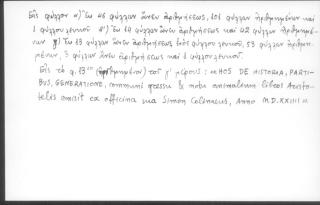 Εἰς φύλλον α) Τω 46 φύλλων ἄνευ ἀριθμήσεως, 101 φύλλων ἀριθμημένων καὶ
1 φύλλου λευκοῦ β') Τω 14 φύλλων ἄνευ ἀριθμήσεως καὶ 42 φύλλων ἀριθμημέ-
νων γ) Τω 13 φύλλων ἄνευ ἀριθμήσεως ἑνὸς φύλλου λευκοῦ, 53 φύλλων ἀριθμη-
μένων, 3 φύλλων ἄνευ ἀριθμήσεως καὶ 1 φύλλου λευκοῦ.
Εἰς τὸ φ. 13 τοῦ γ' μέρους: «HOS DE HISTORIA, PARTI-
BUS, GENERATIONE, communi gressu & motu animalium libros Aristo-
telis emisit ex officina sua Simon Colinaeus, Anno M.D.XXIIII